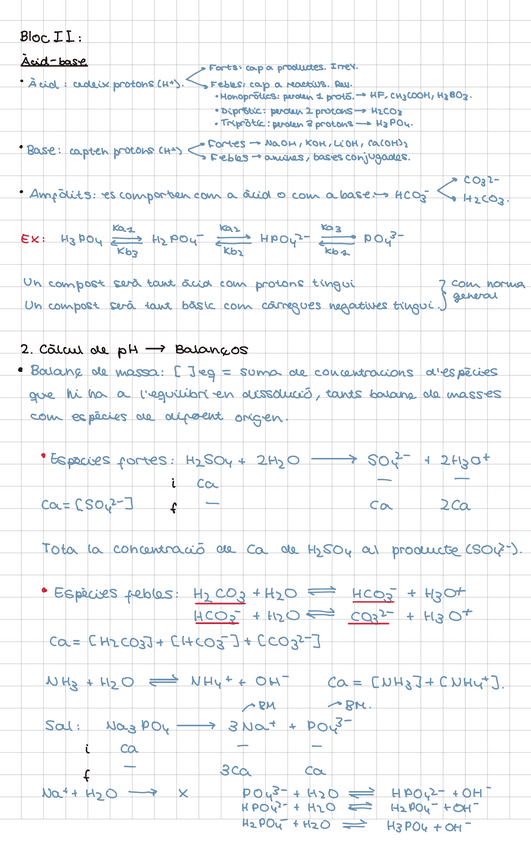 Bloc II:
Àcid-base
Forts: cap a productes. Irrev.
• Àcid: cedeix protons (H⁺).
Febles: cap a reactius. Rev.
• Monopròtics: perden 1 protó. → HF, CH₃COOH, H₃BO₃.
• Dipròtic: perden 2 protons → H₂CO₃
• Tripròtic: perden 3 protons → H₃PO₄.
• Base: capten protons (H⁺)
Fortes → NaOH, KOH, LiOH, Ca(OH)₂
Febles → amines, bases conjugades.
• Ampòlits: es comporten com a àcid o com a base → HCO₃⁻
CO₃²⁻
H₂CO₃.
Ex: H₃PO₄ ⇌ H₂PO₄⁻ ⇌ HPO₄²⁻ ⇌ PO₄³⁻
Ka1 Ka2 Ka3
Kb3 Kb2 Kb1
Un compost serà tant àcid com protons tingui
Un compost serà tant bàsic com càrregues negatives tingui.
com norma
general
2. Càlcul de pH → Balanços
• Balanç de massa: [ ]eq = suma de concentracions d'espècies
que hi ha a l'equilibri en dissolució, tants balanç de masses
com espècies de diferent origen.
• Espècies fortes: H₂SO₄ + 2H₂O → SO₄²⁻ + 2H₃O⁺
i Ca — —
Ca = [SO₄²⁻] f — Ca 2Ca
Tota la concentració de Ca de H₂SO₄ al producte (SO₄²⁻).
• Espècies febles: H₂CO₃ + H₂O ⇌ HCO₃⁻ + H₃O⁺
HCO₃⁻ + H₂O ⇌ CO₃²⁻ + H₃O⁺
Ca = [H₂CO₃] + [HCO₃⁻] + [CO₃²⁻]
NH₃ + H₂O ⇌ NH₄⁺ + OH⁻ Ca = [NH₃] + [NH₄⁺].
BM BM.
Sal: Na₃PO₄ → 3Na⁺ + PO₄³⁻
i Ca — —
f — 3Ca Ca
Na⁺ + H₂O → x PO₄³⁻ + H₂O ⇌ HPO₄²⁻ + OH⁻
HPO₄²⁻ + H₂O ⇌ H₂PO₄⁻ + OH⁻
H₂PO₄⁻ + H₂O ⇌ H₃PO₄ + OH⁻